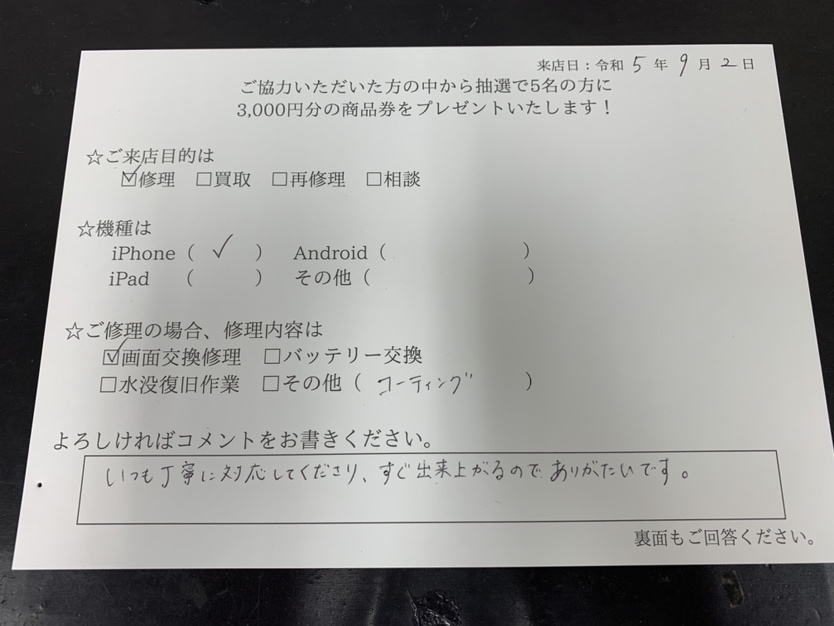 来店日：令和 5 年 9 月 2 日
ご協力いただいた方の中から抽選で5名の方に
3,000円分の商品券をプレゼントいたします！
☆ご来店目的は
☑修理 □買取 □再修理 □相談
☆機種は
iPhone（ ✓ ） Android（ ）
iPad （ ） その他（ ）
☆ご修理の場合、修理内容は
☑画面交換修理 □バッテリー交換
□水没復旧作業 □その他（ コーティング ）
よろしければコメントをお書きください。
いつも丁寧に対応してくださり、すぐ出来上がるので ありがたいです。
裏面もご回答ください。